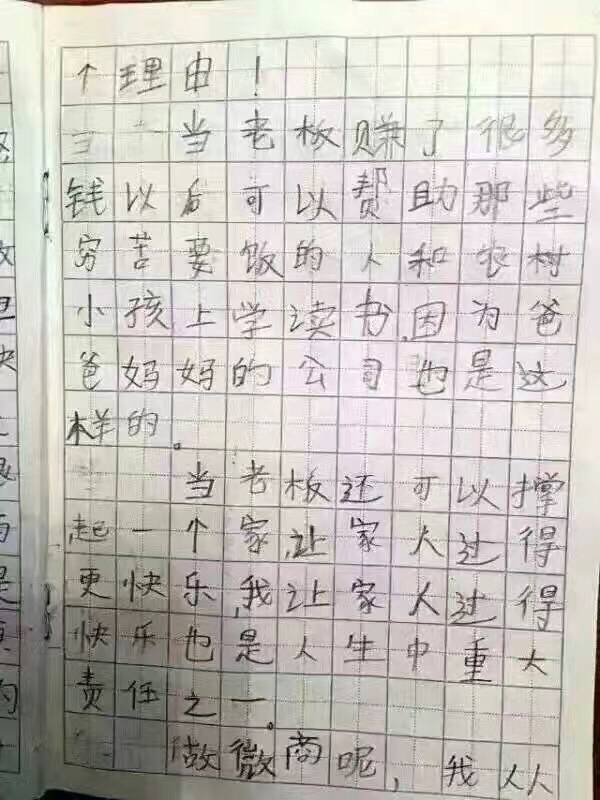 个理由！
当老板赚了很多
钱以后可以帮助那些
穷苦要饭的人和农村
小孩上学读书,因为爸
爸妈妈的公司也是这
样的。
当老板还可以撑
起一个家,让家人过得
更快乐,我让家人过得
快乐也是人生中重大
责任之一。
做微商呢，我从